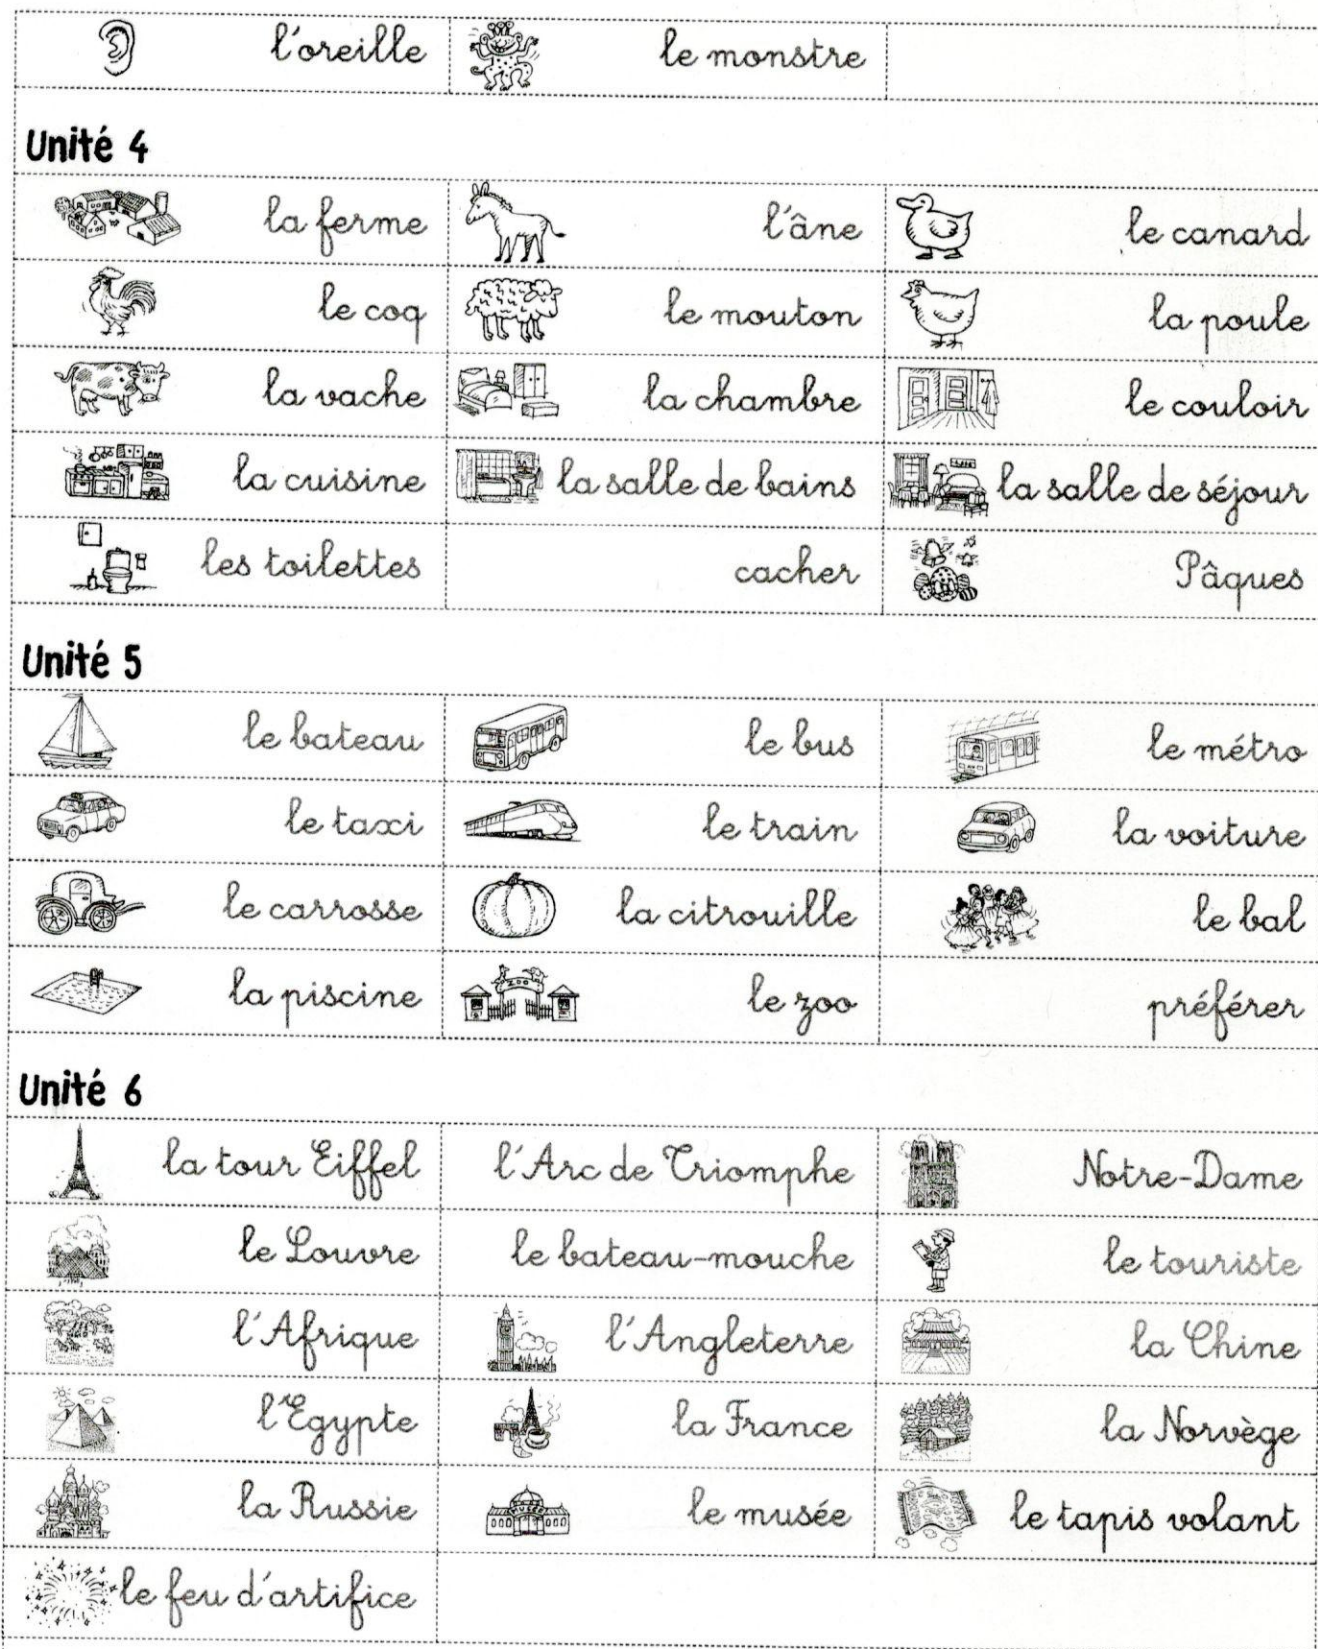 l'oreille le monstre
Unité 4
la ferme l'âne le canard
le coq le mouton la poule
la vache la chambre le couloir
la cuisine la salle de bains la salle de séjour
les toilettes cacher Pâques
Unité 5
le bateau le bus le métro
le taxi le train la voiture
le carrosse la citrouille le bal
la piscine ZOO le zoo préférer
Unité 6
la tour Eiffel l'Arc de Triomphe Notre-Dame
le Louvre le bateau-mouche le touriste
l'Afrique l'Angleterre la Chine
l'Egypte la France la Norvège
la Russie MUSEE le musée le tapis volant
le feu d'artifice